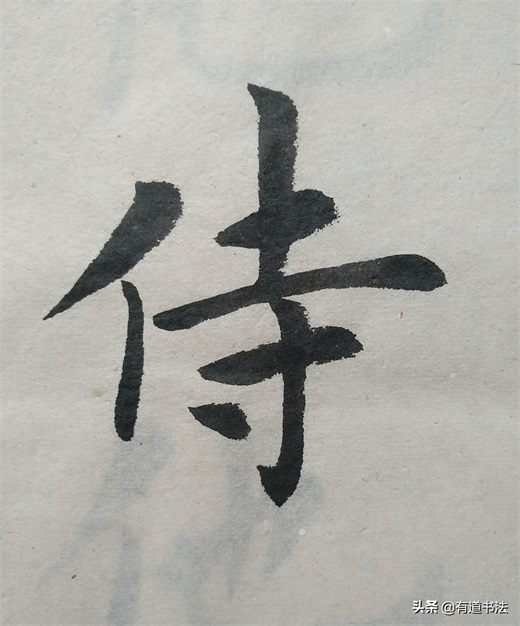 侍
头条 @有道书法